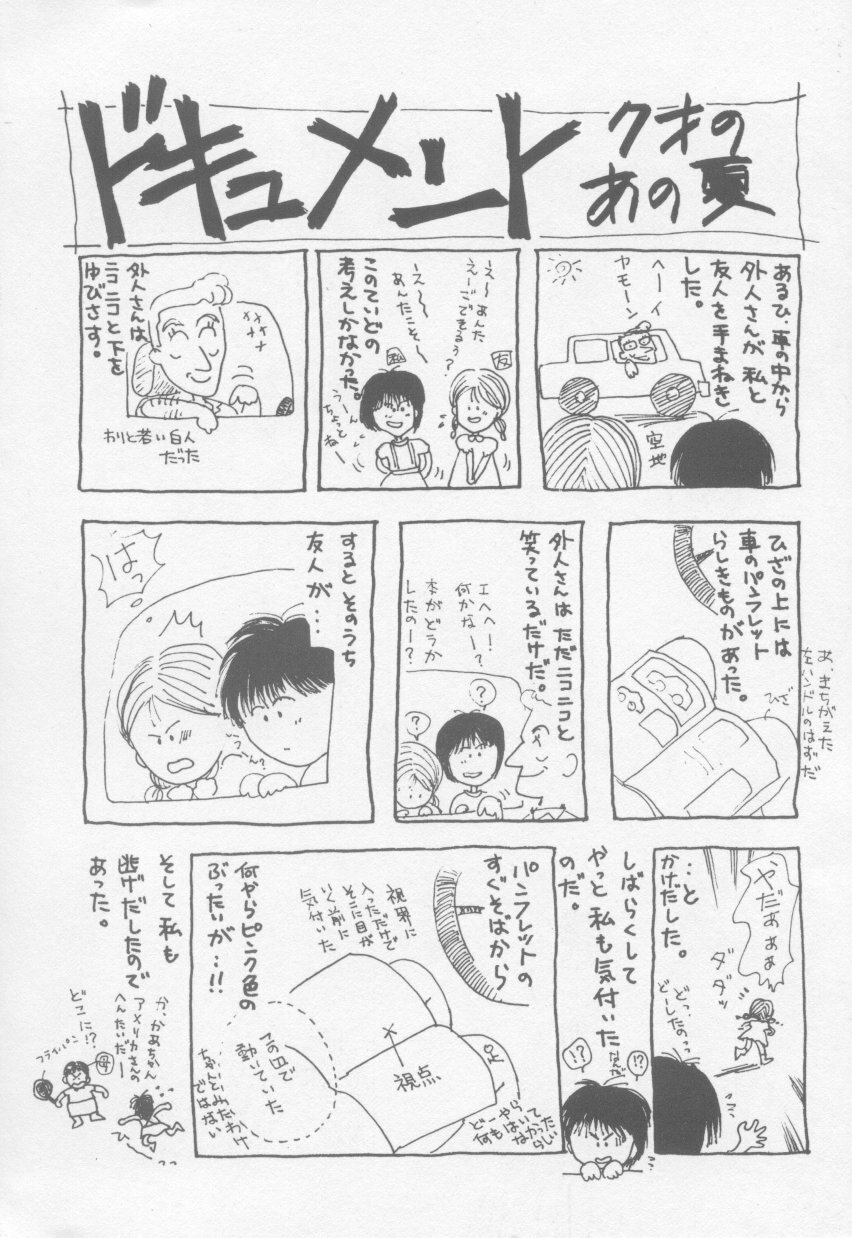 ドキュメント
クオの
あの夏
あるひ、車の中から
外人さんが 私と
友人を手まねき
した。
ヘーイ
カモーン
空地
友
え〜あんた
えーごできるぅ?
え〜〜
あんたこそ〜
私
このていどの
考えしかなかった。
うーん
ちょっとねー
外人さんは
ニコニコと下を
ゆびさす。
わりと若い白人
だった
ひざの上には
車のパンフレット
らしきものがあった。
ひざ
あ、まちがえた
左ハンドルのはずだ
外人さんは ただニコニコと
笑っているだけだ。
エヘヘ!
何かなー?
本がどうか
したのー?
?
?
?
するとそのうち
友人が…
はっ
う〜ん?
やだぁぁぁ
…と
かけだした。
ダダッ
どっ、
どーしたのっっ
しばらくして
やっと 私も気付いた
のだ。
!?
なんだ
!?
パンフレットの
すぐそばから
視界に
入っただけで
そこに目が
いく前に
気付いた
何やらピンク色の
ぶったいが…!!
ひざ
視点
この辺で
動いていた
ちゃんとみたわけ
ではない
ど〜やら
何もはいて
なかった
らしい
そして 私も
逃げだしたので
あった。
か、かあちゃん
アメリカさんの
へんたいだー
どこに!?
フライパン
母